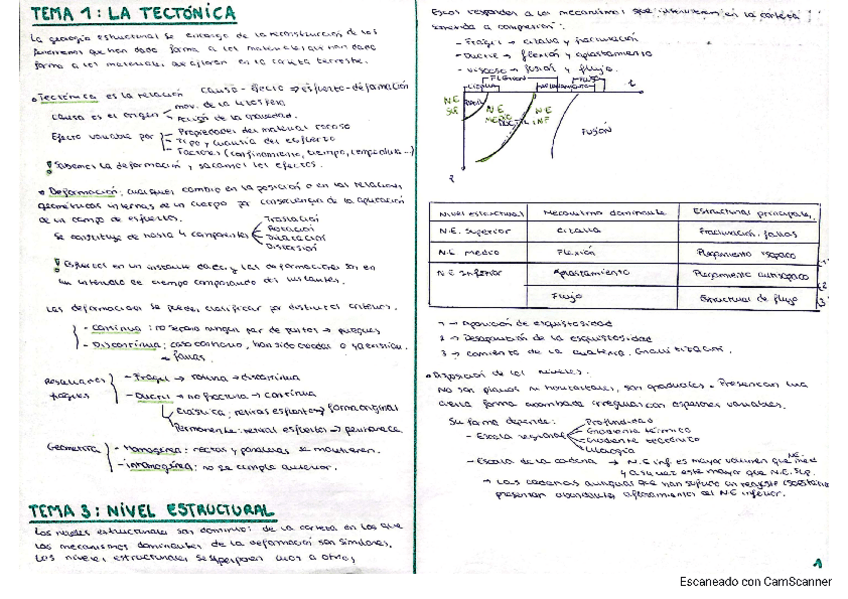 TEMA 1: LA TECTÓNICA
La geología estructural se encarga de la reconstrucción de los
fenómenos que han dado forma a los materiales que han dado
forma a los materiales que afloran en la corteza terrestre.
Tectónica es la relación causa-efecto → esfuerzo-deformación
Causa es el origen mov. de la litosfera
Acción de la gravedad.
Efecto variable por Propiedades del material rocoso
Tipo y cuantía del esfuerzo
Factores (confinamiento, tiempo, temperatura...)
! Sabemos la deformación y sacamos los efectos.
Deformación: cualquier cambio en la posición o en las relaciones
geométricas internas de un cuerpo por consecuencia de la aplicación
de un campo de esfuerzos.
Se constituye de hasta 4 componentes Traslación
Rotación
Dilatación
Distorsión
! Esfuerzos en un instante dado y las deformaciones son en
un intervalo de tiempo comparando dos instantes.
Las deformaciones se pueden clasificar por distintos criterios.
- Continua: no separa ningún par de puntos → pliegues
- Discontinua: caso contrario, han sido creadas
→ fallas.
- Frágil → rotura → discontinua
- Dúctil → no fractura → continua
Elástica: retiras esfuerzo → forma original
Permanente: retiras esfuerzo → permanece.
Geometría - Homogénea: rectas y paralelas se mantienen.
- Inhomogénea: no se cumple anterior.
TEMA 3: NIVEL ESTRUCTURAL
Los niveles estructurales son dominios de la corteza en los que
los mecanismos dominantes de la deformación son similares.
Los niveles estructurales se superponen unos a otros,
Estos responden a los mecanismos que intervienen en la corteza
sometida a compresión:
- Frágil → cizalla y fracturación
- Dúctil → flexión y aplastamiento
- Viscoso → fusión y flujo.
FLEXIÓN FLUJO
CIZALLA APLASTAMIENTO t
N.E SUP
N.E MEDIO
N.E INF
FUSIÓN
Nivel estructural Mecanismo dominante Estructuras principales.
N.E. Superior Cizalla Fracturación, fallas
N.E Medio Flexión Plegamiento isópaco
N.E Inferior Aplastamiento Plegamiento anisópaco
Flujo Estructuras de flujo
1 → Aparición de esquistosidad
2 → Desaparición de la esquistosidad
3 → comienzo de la anatexia. Granitización.
Disposición de los niveles.
No son planos ni horizontales, son graduales. Presentan una
cierta forma acombada irregular con espesores variables.
Su forma depende:
- Escala regional Profundidad
Gradiente térmico
Gradiente tectónico
Litología
- Escala de la cadena → N.E inf es mayor volumen que N.E med
y a su vez este mayor que N.E. Sup.
→ Las cadenas antiguas que han sufrido un reajuste isostático
presentan abundantes afloramientos del N.E inferior.
1
Escaneado con CamScanner